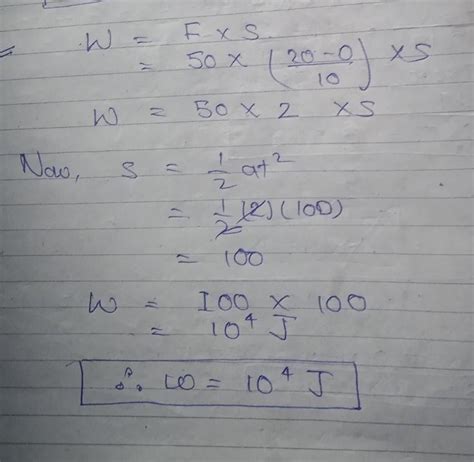 = W = F x S
= 50 x (20-0/10) x S
W = 50 x 2 x S
Now, s = 1/2 at²
= 1/2 (2) (100)
= 100
W = 100 x 100
= 10⁴ J
∴ W = 10⁴ J